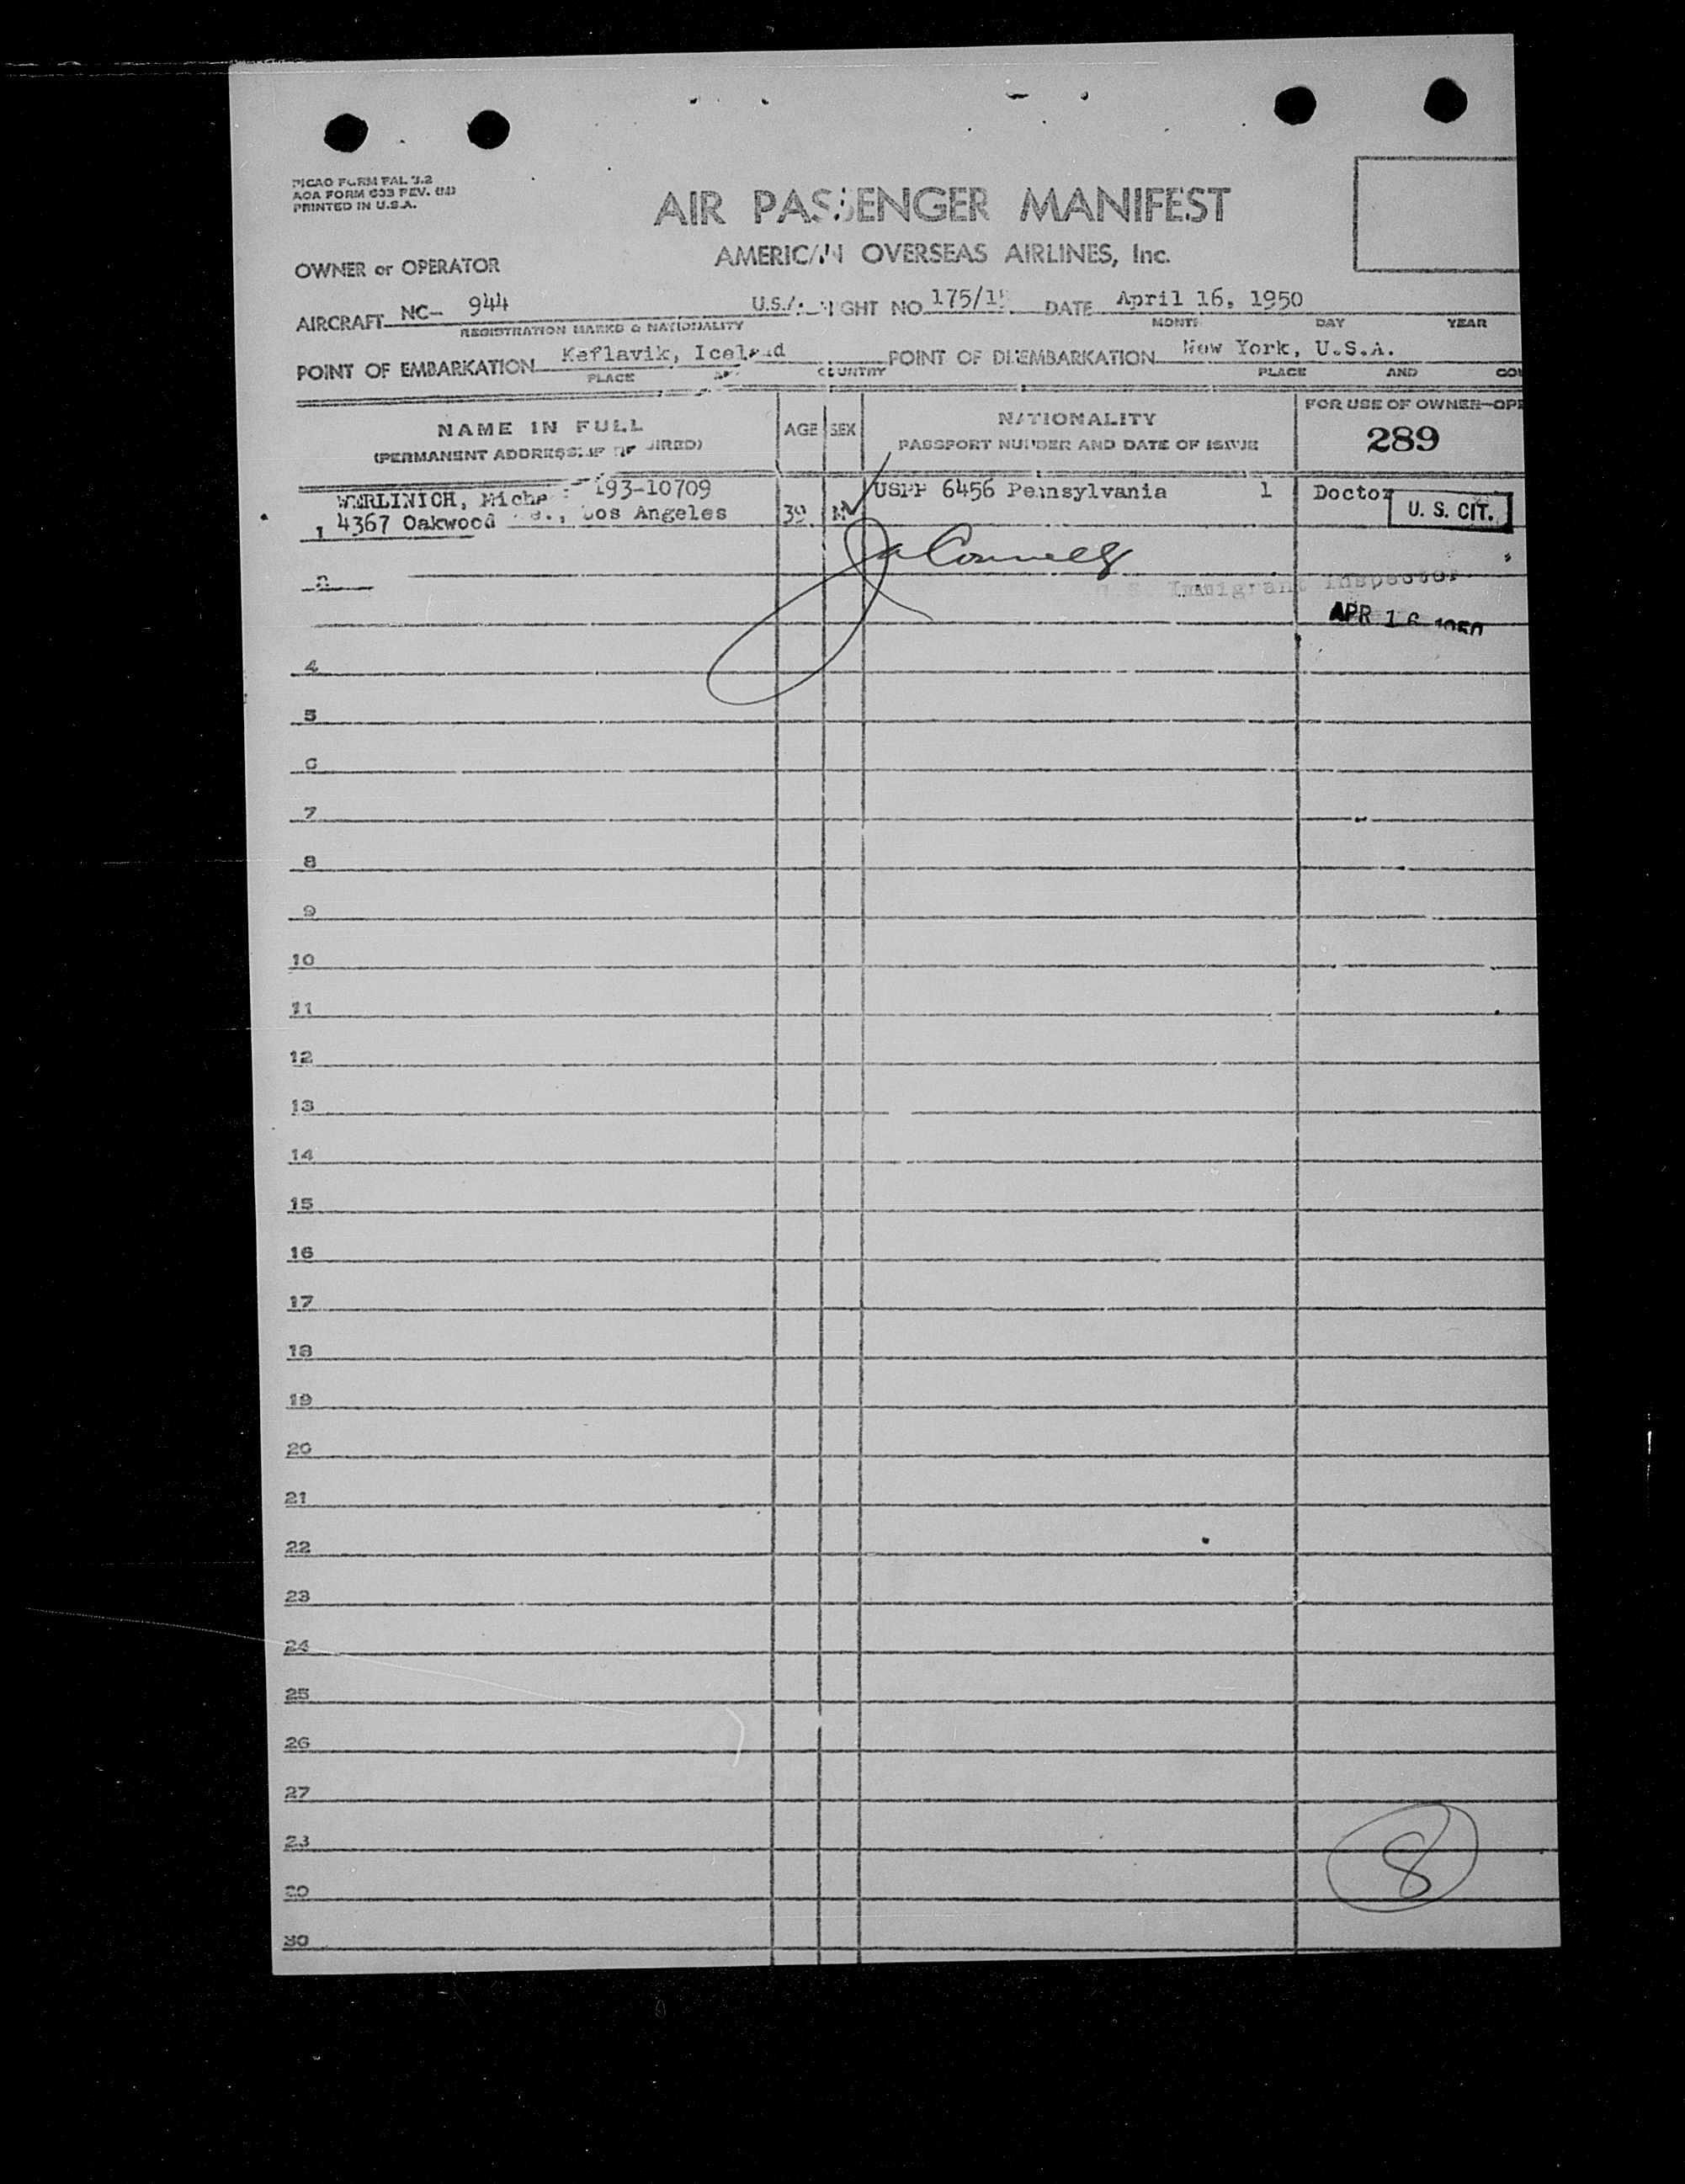 PICAO FORM PAL 3.2
AOA FORM 633 REV.
PRINTED IN U.S.A.
AIR PASSENGER MANIFEST
AMERICAN OVERSEAS AIRLINES, Inc.
OWNER or OPERATOR
AIRCRAFT NC- 944 U.S.A. FLIGHT NO 175/15 DATE April 16, 1950
REGISTRATION MARKS & NATIONALITY MONTH DAY YEAR
POINT OF EMBARKATION Keflavik, Iceland POINT OF DISEMBARKATION New York, U.S.A.
PLACE AND COUNTRY PLACE AND COU
NAME IN FULL
(PERMANENT ADDRESS IF REQUIRED)
AGE SEX
NATIONALITY
PASSPORT NUMBER AND DATE OF ISSUE
FOR USE OF OWNER—OPE
289
WERLINICH, 193-10709 USPP 6456 Pennsylvania 1 Doctor
1 4367 Oakwood Los Angeles 39 M U. S. CIT.
U.S. Immigrant Inspector
APR 16 1950
4
5
6
7
8
9
10
11
12
13
14
15
16
17
18
19
20
21
22
23
24
25
26
27
28
29
30
8